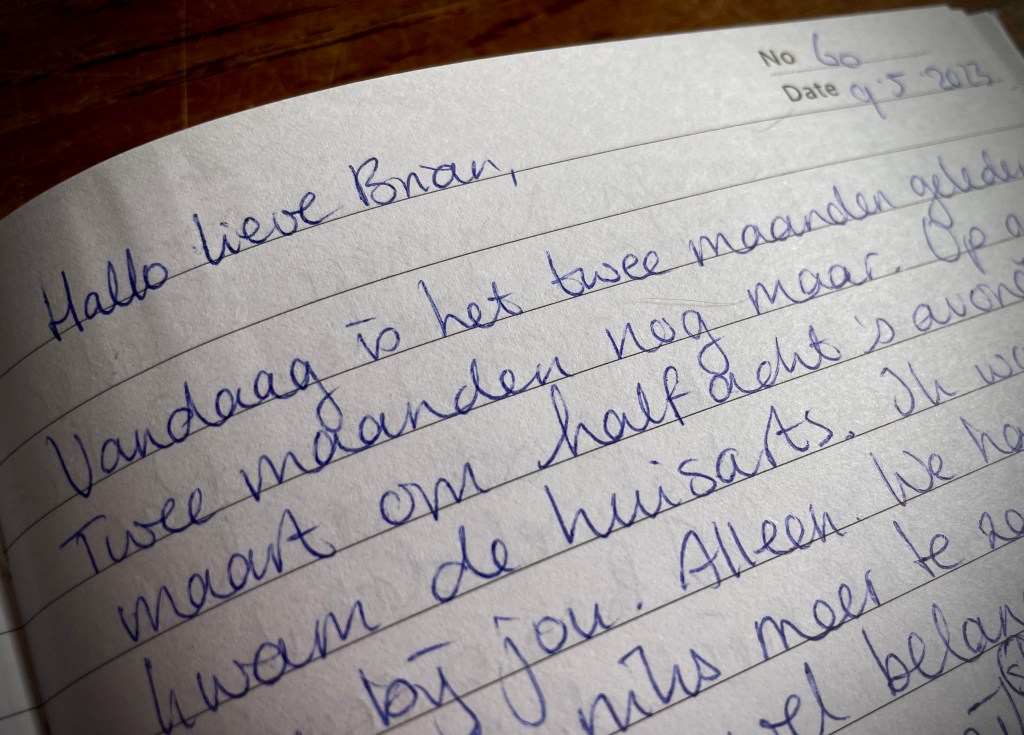 No 60
Date 9·5·2023
Hallo lieve Brian,
Vandaag is het twee maanden geleden
Twee maanden nog maar. Op
maart om half acht 's avond
kwam de huisarts. Ik
bij jou. Alleen. We
niks meer te